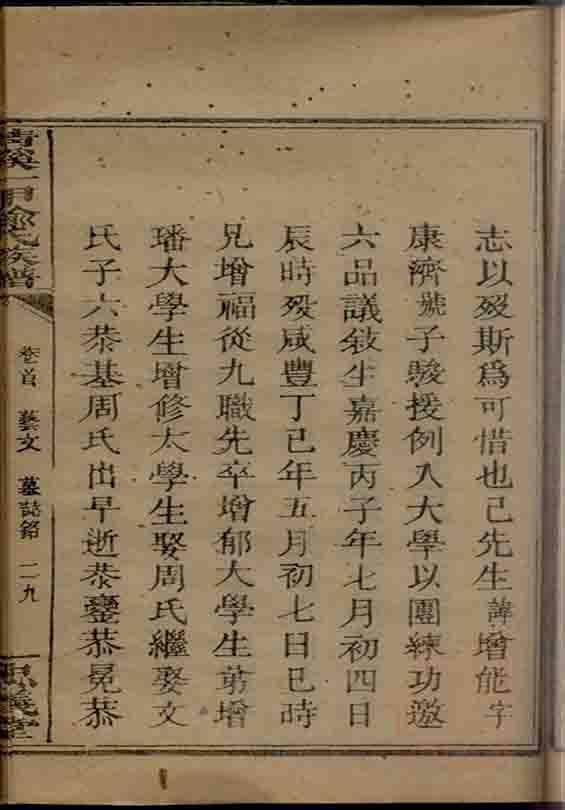 志以歿斯為可惜也已先生諱增能字
康濟號子駿援例入大學以團練功邀
六品議敘生嘉慶丙子年七月初四日
辰時歿咸豐丁巳年五月初七日巳時
兄增福從九職先卒增郁大學生弟增
璠大學生增修太學生娶周氏繼娶文
氏子六恭基周氏出早逝恭鑾恭冕恭
氏族譜
卷首 藝文 墓誌銘 二一九
義堂